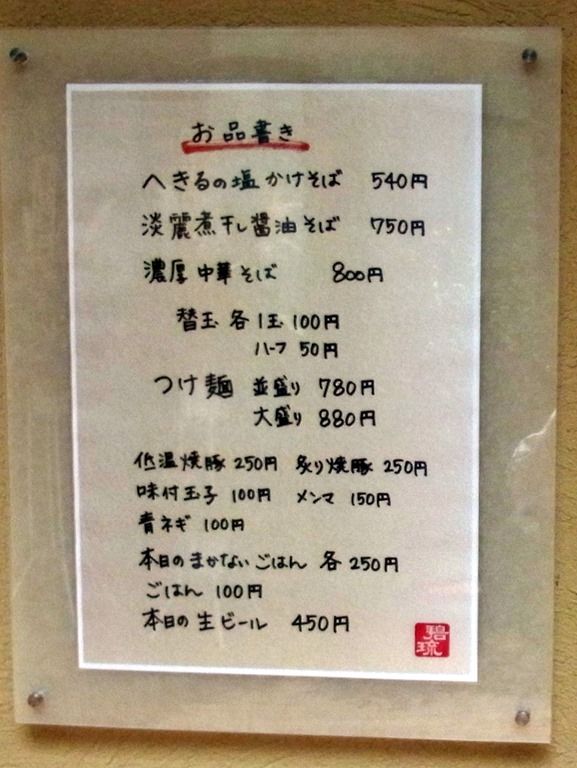 お品書き
へきるの塩かけそば 540円
淡麗煮干し醤油そば 750円
濃厚中華そば 800円
替玉 各1玉 100円
ハーフ 50円
つけ麺 並盛り 780円
大盛り 880円
低温焼豚 250円 炙り焼豚 250円
味付玉子 100円 メンマ 150円
青ネギ 100円
本日のまかないごはん 各250円
ごはん 100円
本日の生ビール 450円
碧琉